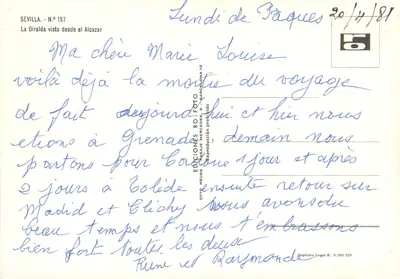 SEVILLA. - N.º 157
La Giralda vista desde el Alcazar
Lundi de Pâques 20/4/81
Ma chère Marie Louise
voilà déjà la moitié du voyage
de fait aujourd'hui et hier nous
etions à Grenade, demain nous
partons pour Cordoue 1 jour et après
2 jours à Tolède ensuite retour sur
Madrid et Clichy nous avons du
beau temps et nous t'embrassons
bien fort toutes les deux
Reine et Raymonde
EDICIONES RO-FOTO
Reproducción prohibida